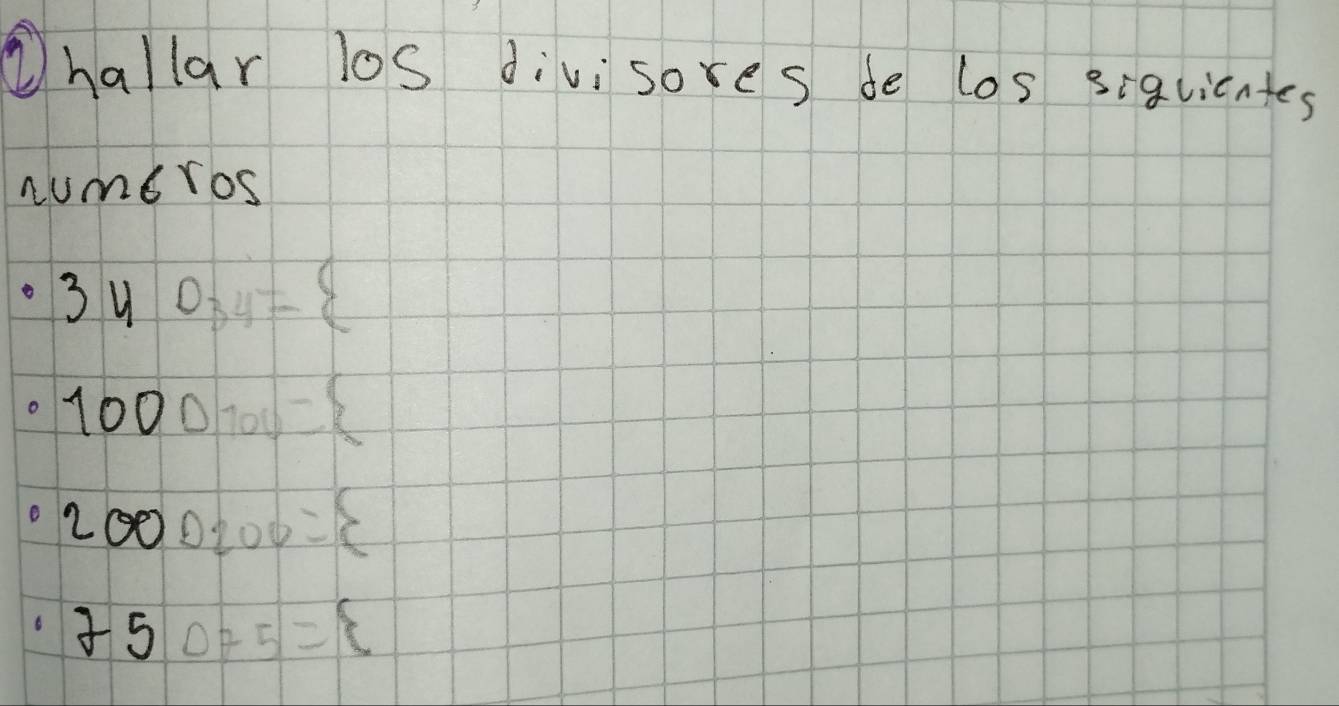 ② hallar los divisores de los siguientes
numeros
• 34 D34 = {
• 100 D100 = {
• 200 D200 = {
• 75 D75 = {